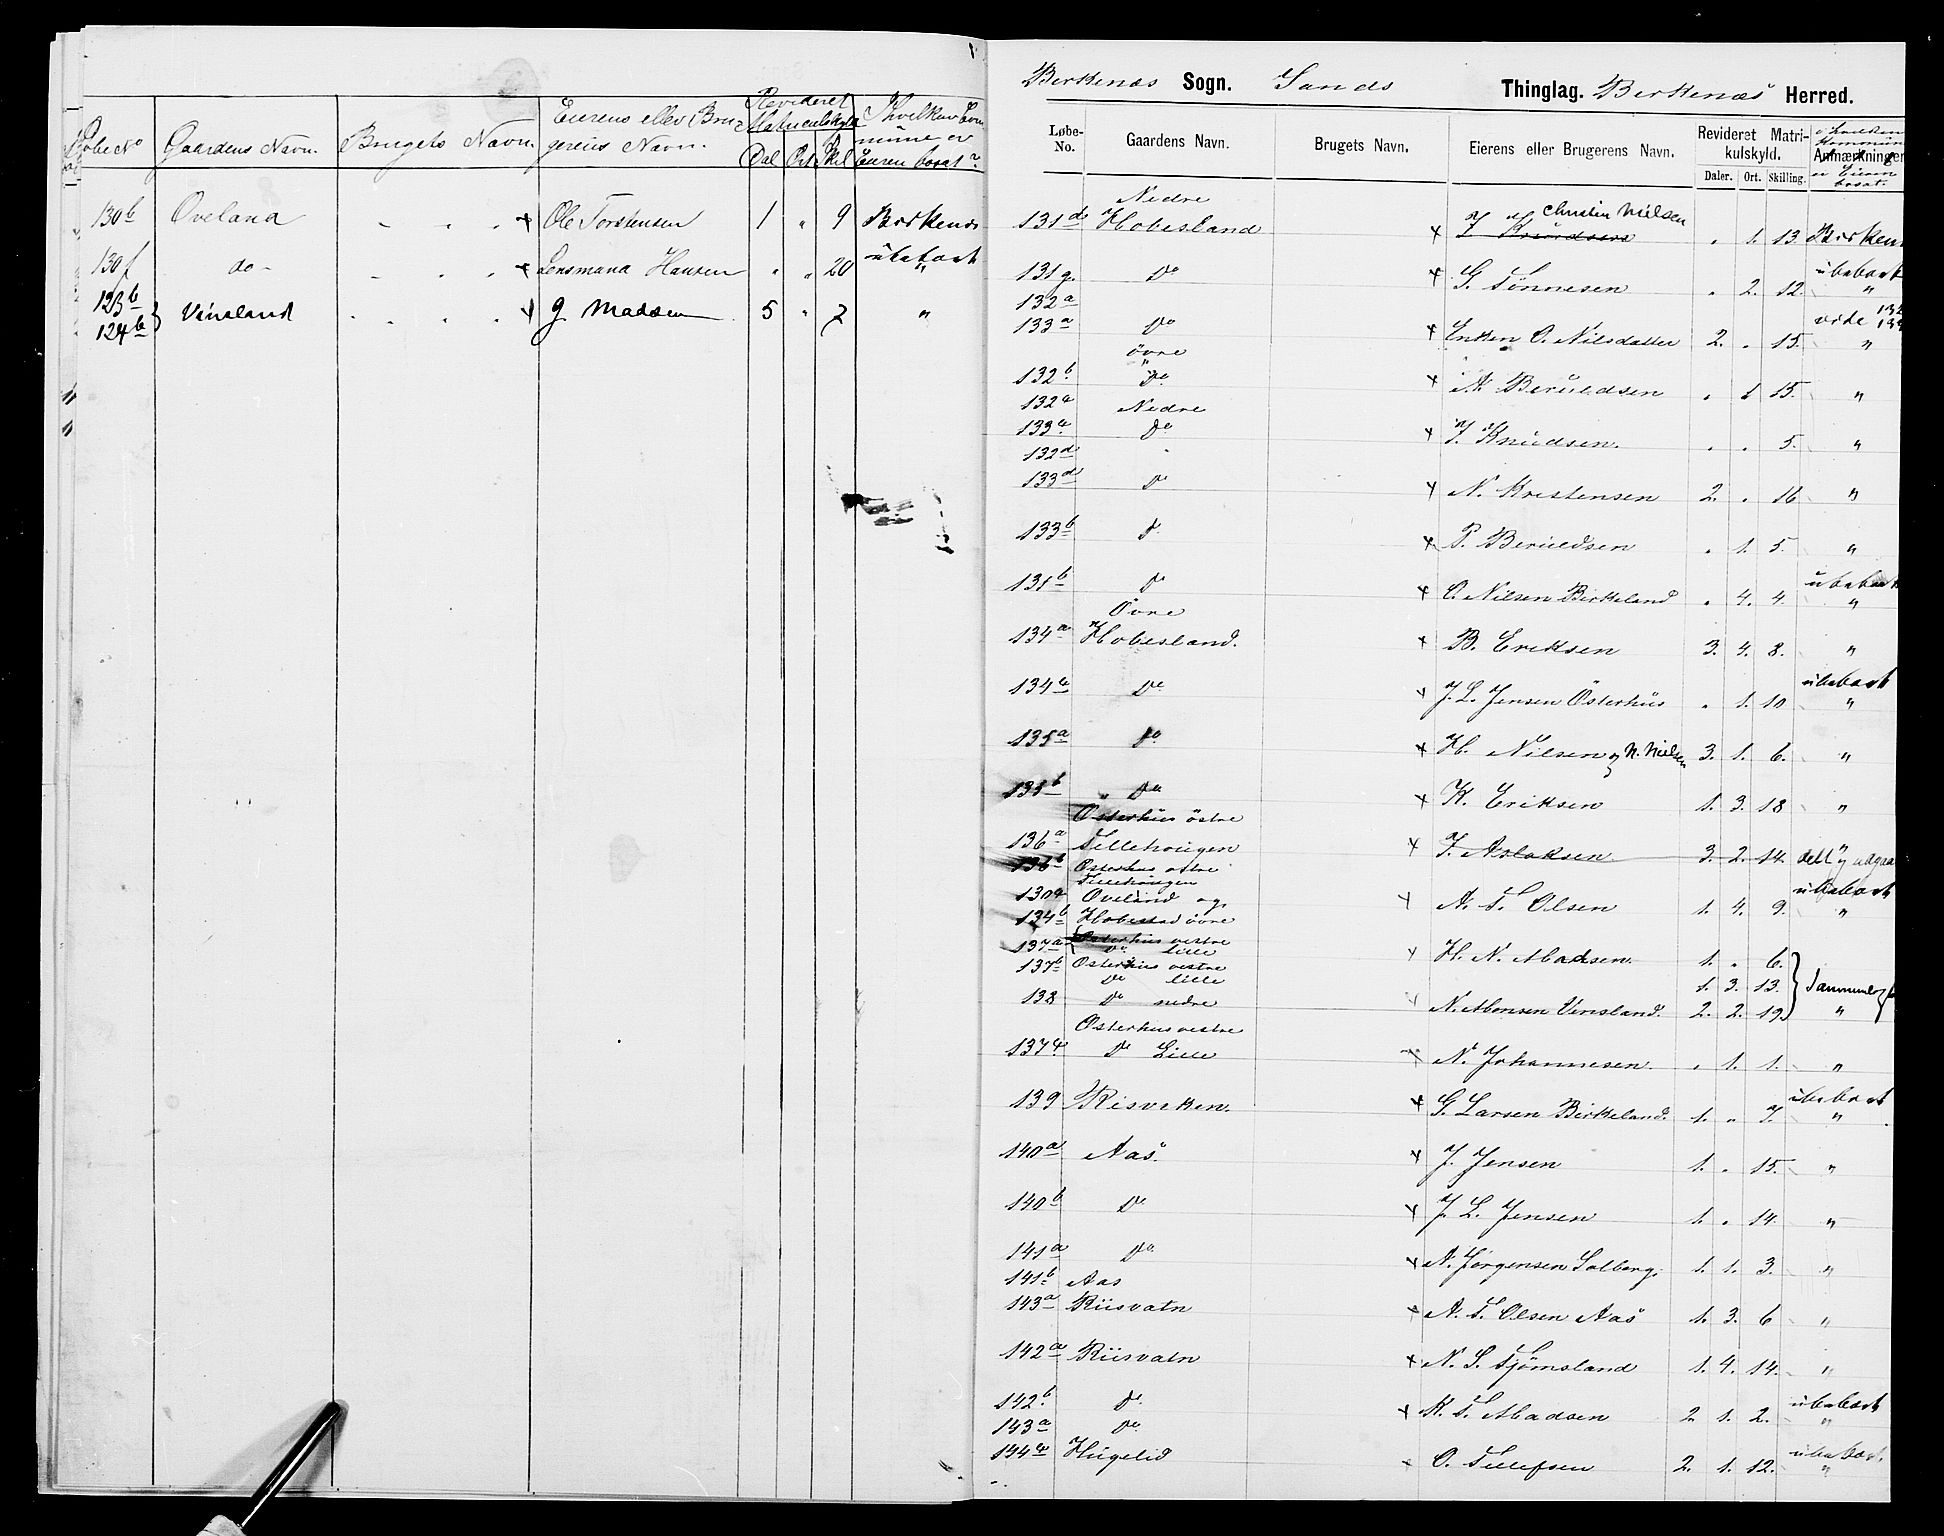 Løbe No Gaardens Navn. Brugets Navn. Eierens eller Brugerens Navn. Revideret Matriculskyld Dal Ort Skil I hvilken Commune er Eieren bosat?
130b Oveland Ole Torstensen 1 " 9 Birkenes
130f do- Lensmand Hansen " " 20 ubeboet "
123b
124b } Vinsland G Madsen 5 " 7 "
Birkenæs Sogn. Sands Thinglag. Birkenæs Herred.
Løbe-No. Gaardens Navn. Brugets Navn. Eierens eller Brugerens Navn. Revideret Matrikulskyld. Anmærkninger
Daler. Ort. Skilling.
Nedre Christen Nielsen
131d Hobesland J Knudsen " 1. 13. Birken
131g. Do G. Tönnesen " 2. 12. ubeboet "
132a
133a Do Enken O. Nilsdatter 2. " 15. vide "
övre
132b Do A. Beruldsen " 1 15. "
132c Nedre
133c Do J. Knudsen. " " 5. "
132d
133d Do N. Kristensen 2. " 16 "
133b Do P. Beruldsen " 1. 5. "
131b Do O. Nilsen Birkeland " 4. 4. ubeboet "
Övre
134a Hobesland. B. Eriksen 3. 4. 8. "
134c Do J. L. Jensen Österhus " 1. 10 ubeboet "
135a Do H. Nilsen og N. Nielsen 3. 1. 6. "
135b " Do K. Eriksen 1. 3. 18 "
Österhus östre
136a Tellehougen T. Aslaksen 3. 2. 14. delt
136b Osterhus östre
Tellehougen
130a Oveland og A. T. Olsen 1. 4. 9. ubeboet "
134b Hobestad övre
137a Osterhus vestre
Do lille H. N. Madsen. 1. " 6.
137b Osterhus vestre
Do lille 1. 3. 13.
138 Do nedre N. Monsen Vensland. 2. 2. 19. "
Osterhus vestre
137c Do Lille N. Johannesen. " 1. 1. "
139 Risveken. G. Larsen Birkeland. 1. " 7. ubeboet "
140a Aas. J. Jensen 1. " 15. "
140b Do J. L. Jensen 1. " 14. "
141a Do N. Jörgensen Solberg. 1. 1. 3. "
141b Aas
143a Riisvatn A. T. Olsen Aas 1. 3. 6 "
142a Riisvatn N. S. Tjömsland 1. 4. 14. "
142b Do K. T. Madsen 2. 1. 2. ubeboet "
143a Do
144c Hugelid O. Tellefsen 2. 1. 12. ubeboet. "